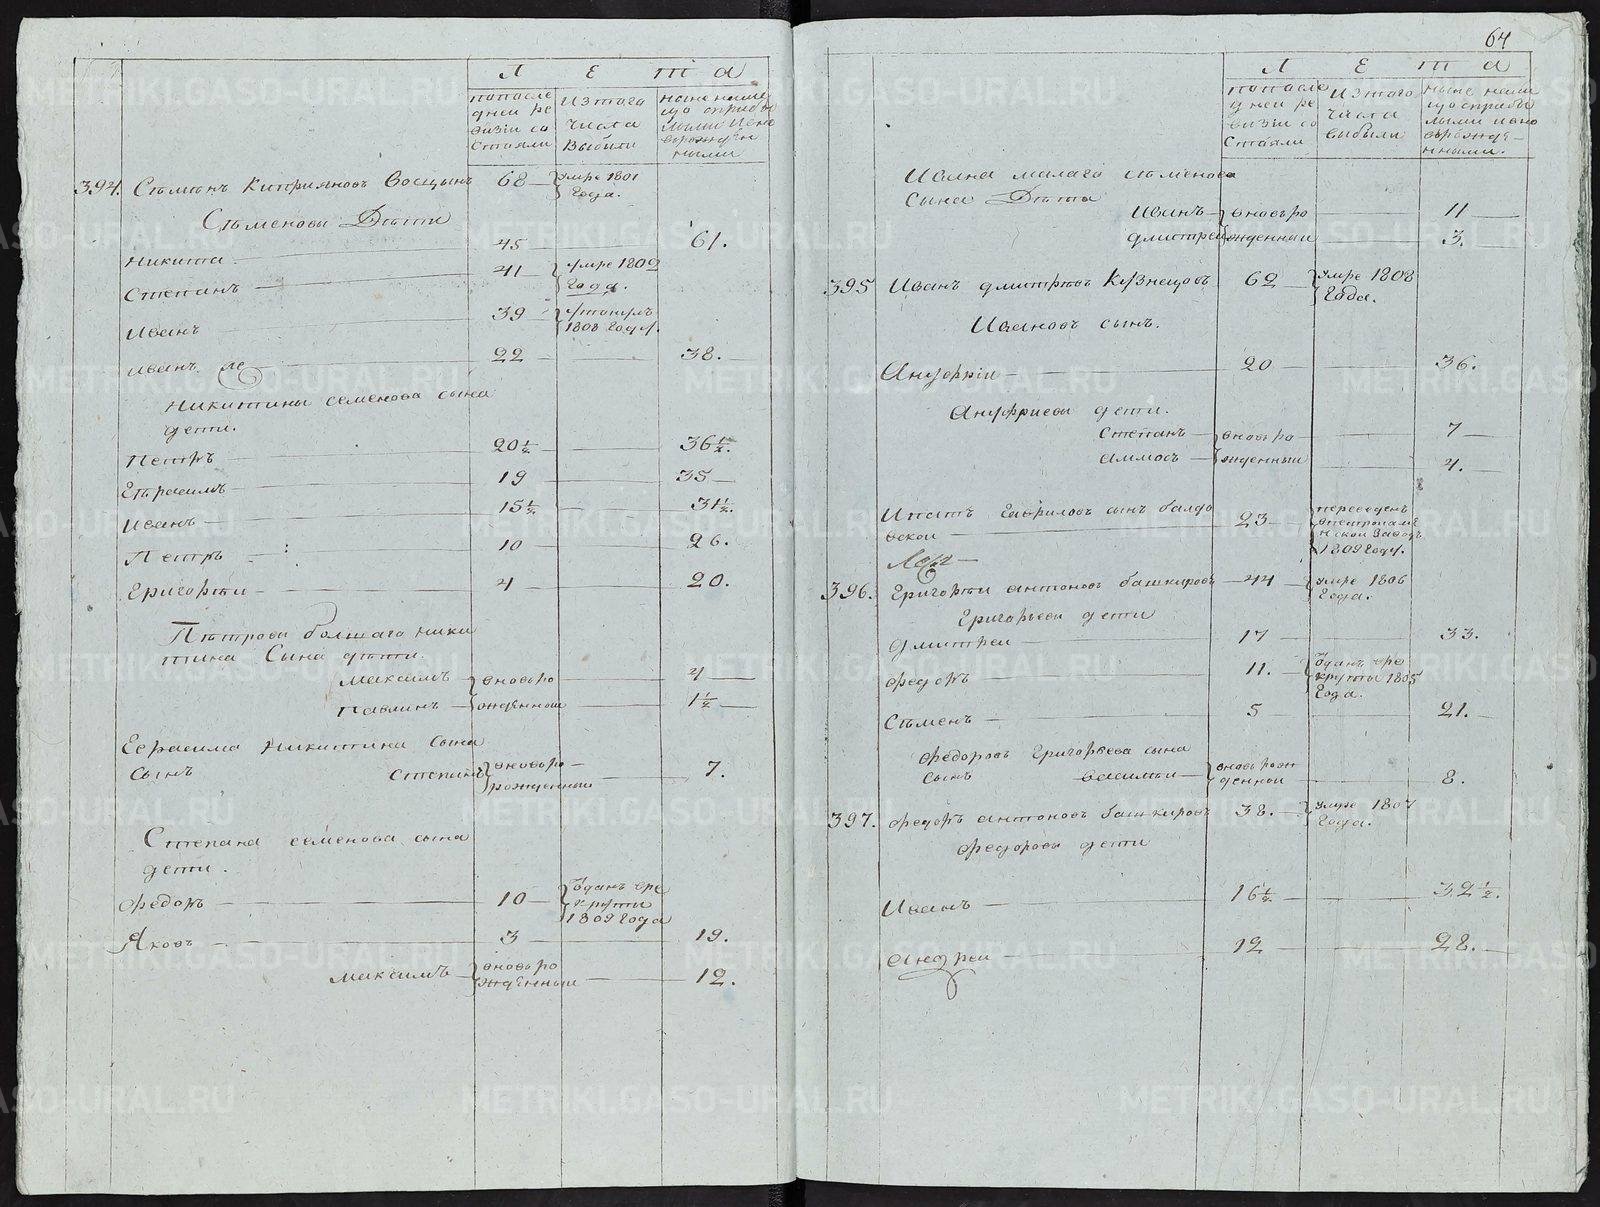 Л Е т а
попосле
дней ре
визiи со
стояли
изтого
числа
выбыли
ныне налицо
394. Сѣмѣнъ Киприяновъ 68 умре 1801
года.
Сѣменовы Дѣти
Никита 45 61.
Степанъ 41 умре 1802
года.
Иванъ 39
1808 году.
Иванъ 22 38.
Никитины семенова сына
дети.
Петръ 20½ 36½.
Ефрасимъ 19 35
Иванъ 15½ 31½.
Петръ 10 26.
Григорѣи 4 20.
Пѣтровы болшаго Ники
тина Сына дѣти.
Максимъ вновьро 4
Павлинъ жденныи 1½
Никитина Сына
сынъ Степанъ вновьро 7.
рожденныи
Степана семенова сына
дети.
Федоръ 10 Ѿданъ вре
круты
1809 года
Яковъ 3 19.
Максимъ вновьро 12.
жденныи
64
Л Е т а
попосле
дней ре
визiи со
стояли
изтого
числа
выбыли
Ивана малаго сѣменова
сына Дѣти
Иванъ вновьро 11
Дмитреи жденныи 3.
395 Иванъ Дмитрѣвъ Кузнецовъ 62 умре 1808
года.
Ивановъ сынъ.
Ануфрiи 20 36.
Ануфриевы дети.
Степанъ вновьро 7
Аммосъ жденныи 4.
Ипатъ Гавриловъ сынъ балдо
вскои 23 переведенъ
впетрокам
нской Заводъ
1809 году.
396. Григорѣи антоновъ башкировъ 44 умре 1806
года.
Григорьевы дети
Дмитреи 17 33.
Федоръ 11. Ѿданъ вре
круты 1805
года.
Сѣменъ 5 21.
Федоровъ Григорьева сына
сынъ василѣи вновьрож 8.
деннои
397. Федоръ антоновъ башкировъ 38. умре 1807
года.
Федоровы дети
Иванъ 16½ 32½.
Андреи 12 28.